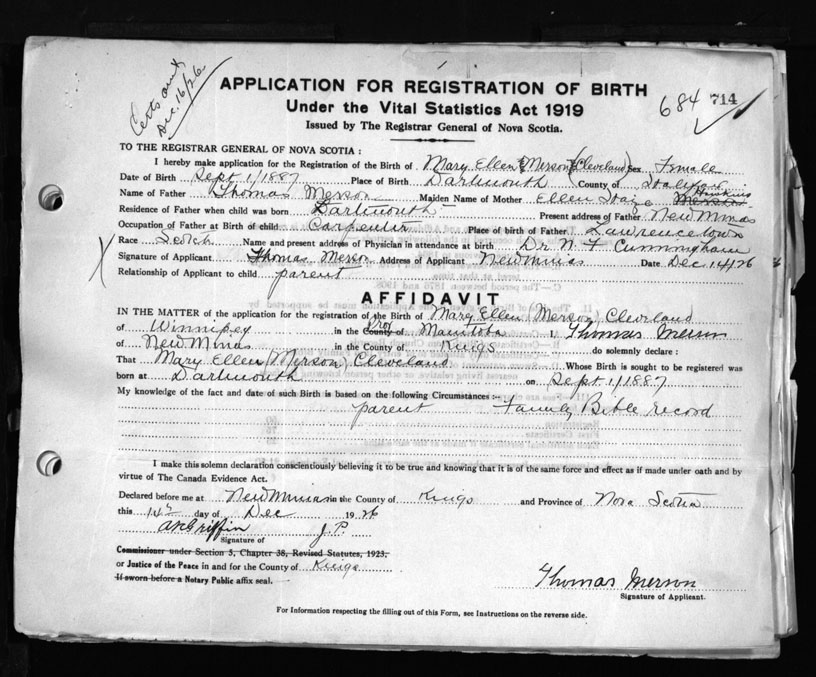 Dec. 16/26
APPLICATION FOR REGISTRATION OF BIRTH
Under the Vital Statistics Act 1919
684 714
Issued by The Registrar General of Nova Scotia.
TO THE REGISTRAR GENERAL OF NOVA SCOTIA :
I hereby make application for the Registration of the Birth of Mary Ellen (Merson) (Cleveland) Sex Female
Date of Birth Sept 1/1887 Place of Birth Dartmouth County of Halifax
Name of Father Thomas Merson Maiden Name of Mother Ellen Merson
Residence of Father when child was born Dartmouth Present address of Father New Minas
Occupation of Father at Birth of child Carpenter Place of birth of Father Lawrencetown
Race Scotch Name and present address of Physician in attendance at birth Dr. N F Cunningham
Signature of Applicant Thomas Merson Address of Applicant New Minas Date Dec 14/26
Relationship of Applicant to child parent
AFFIDAVIT
IN THE MATTER of the application for the registration of the Birth of Mary Ellen (Merson) Cleveland
of Winnipeg in the County Prov of Manitoba I, Thomas Merson
of New Minas in the County of Kings do solemnly declare :
That Mary Ellen (Merson) Cleveland Whose Birth is sought to be registered was
born at Dartmouth on Sept 1/1887
My knowledge of the fact and date of such Birth is based on the following Circumstances :—
parent Family Bible record
I make this solemn declaration conscientiously believing it to be true and knowing that it is of the same force and effect as if made under oath and by
virtue of The Canada Evidence Act.
Declared before me at New Minas in the County of Kings and Province of Nova Scotia
this 14th day of Dec 1926
Griffin J.P.
Signature of
Commissioner under Section 3, Chapter 38, Revised Statutes, 1923,
or Justice of the Peace in and for the County of Kings
If sworn before a Notary Public affix seal.
Thomas Merson
Signature of Applicant.
For Information respecting the filling out of this Form, see Instructions on the reverse side.